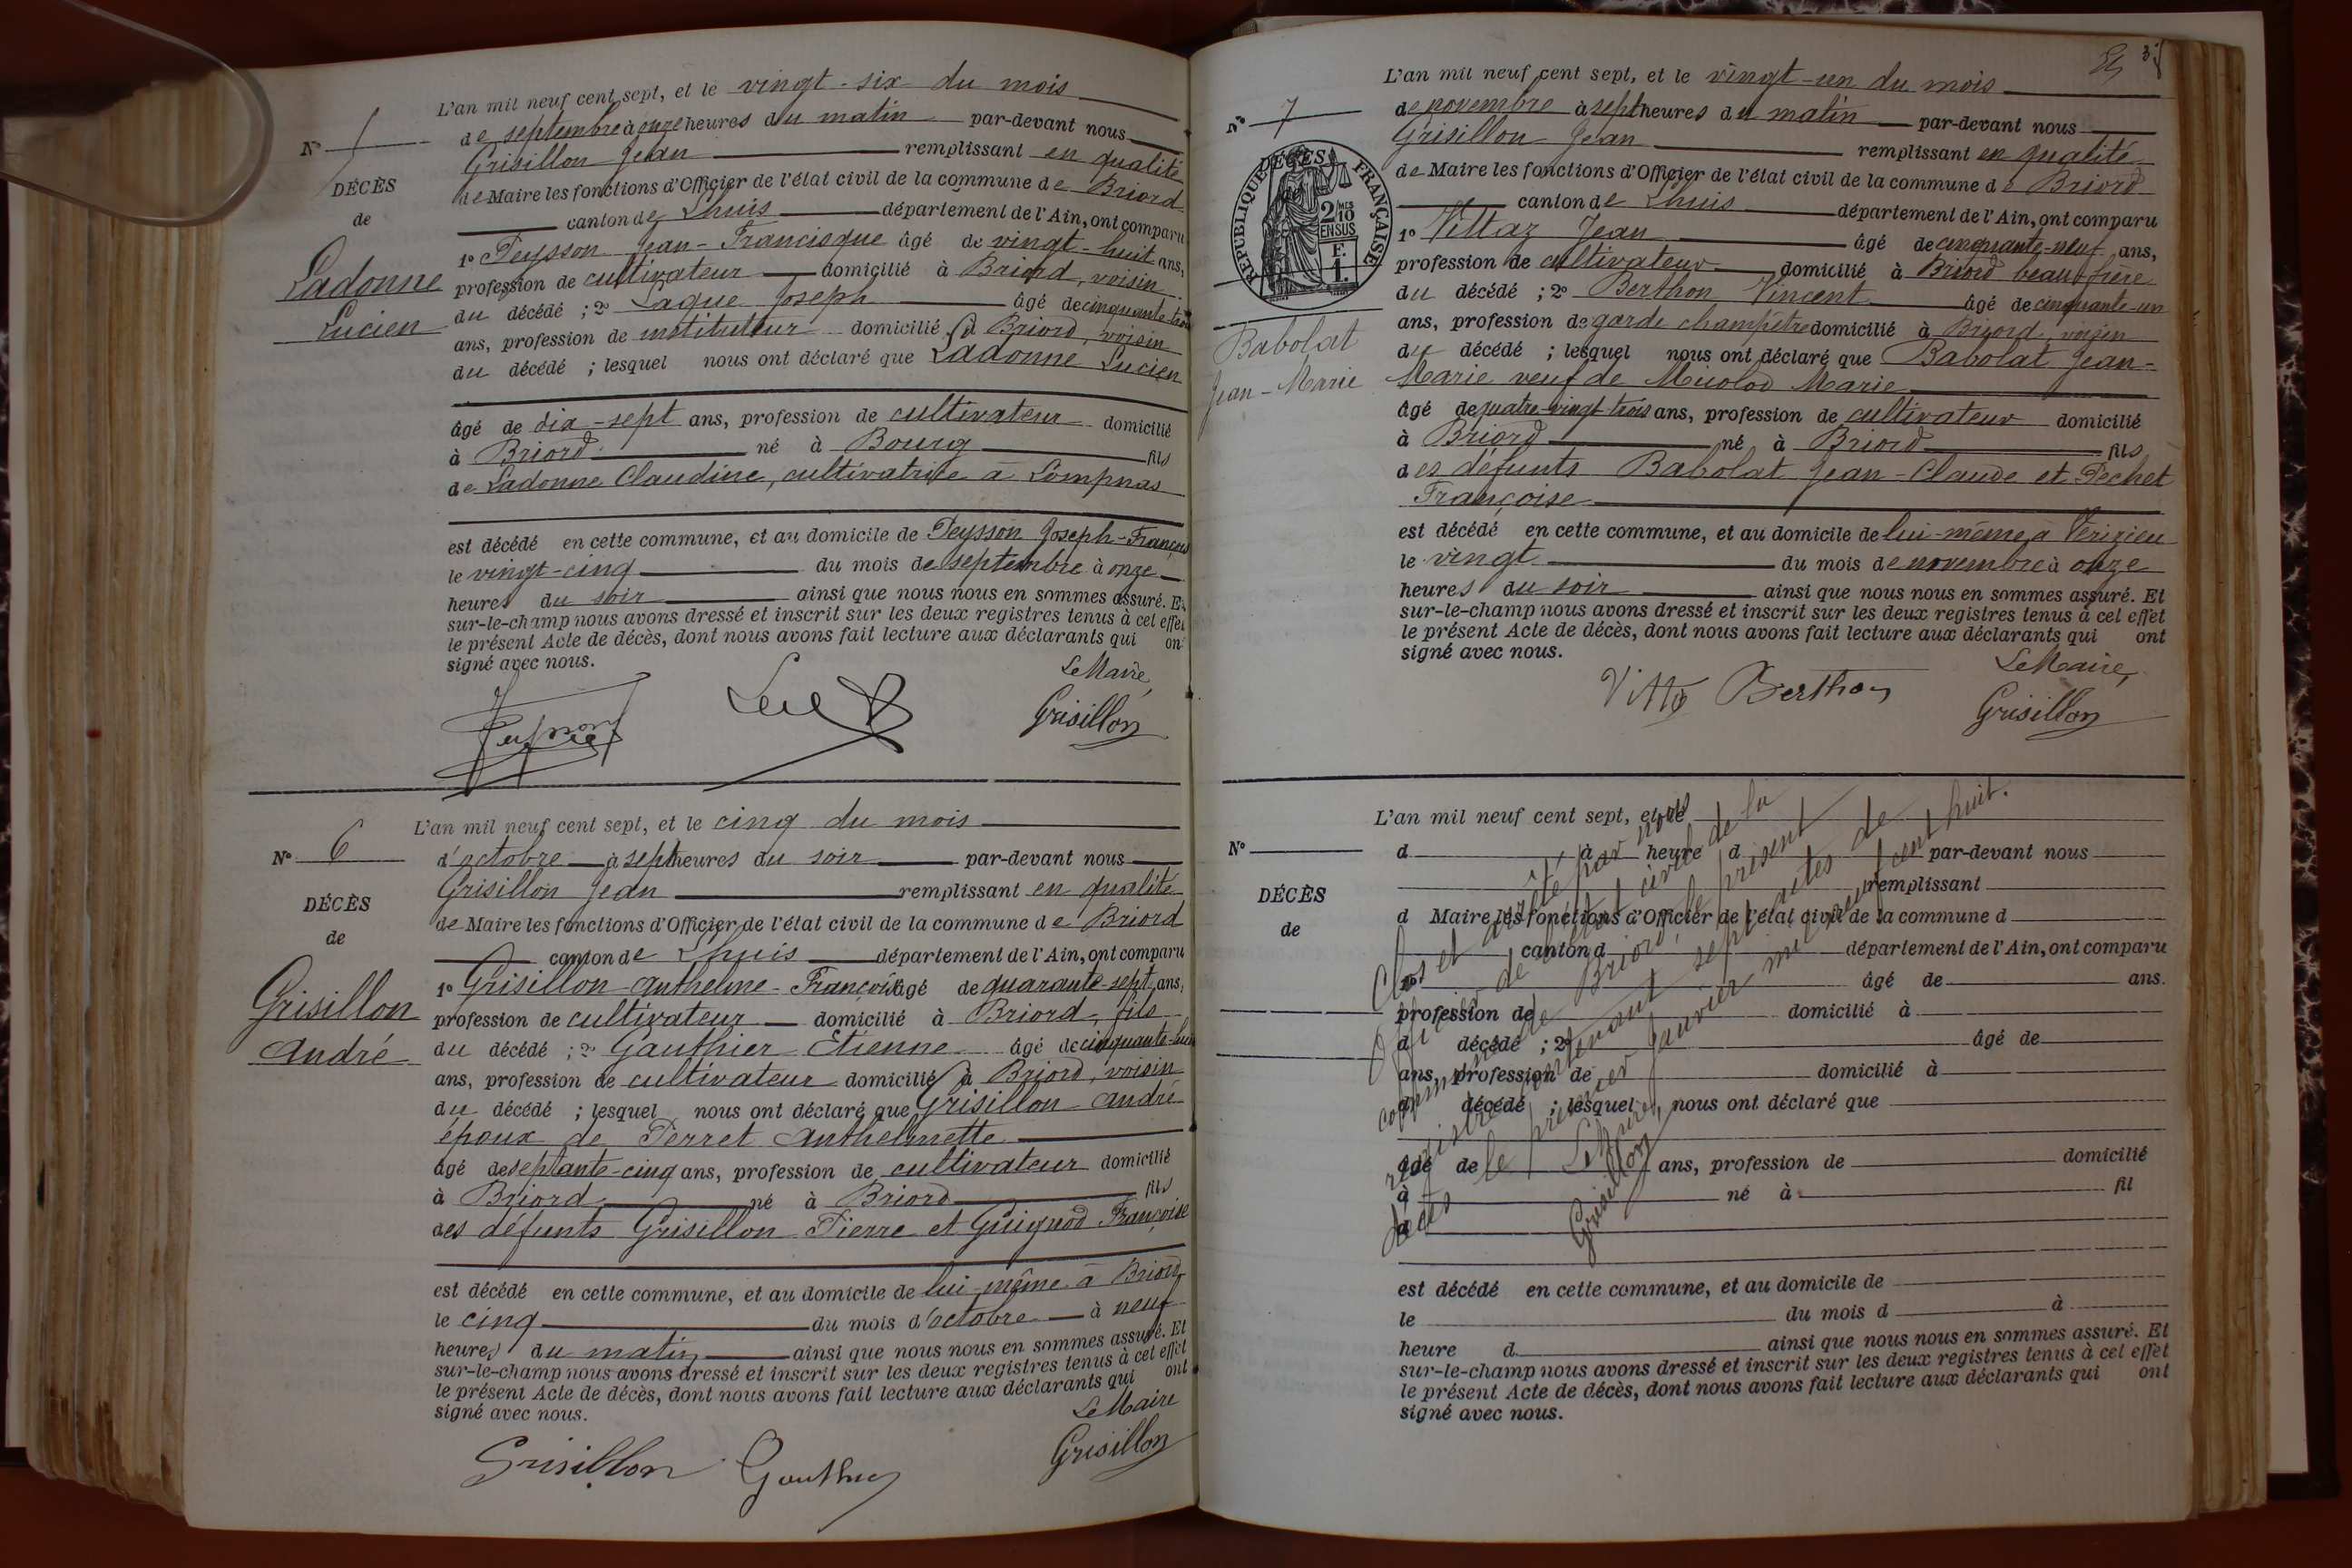 L'an mil neuf cent sept, et le vingt-six du mois
N°
de septembre à onze heures du matin par-devant nous
Grisillon Jean remplissant en qualité
DÉCÈS
de Maire les fonctions d'Officier de l'état civil de la commune de Briord
de
canton de Lhuis département de l'Ain, ont comparu
1° Peysson Jean-Francisque âgé de vingt-huit ans,
Ladonne
profession de cultivateur domicilié à Briord, voisin
Lucien
du décédé ; 2° Laque Joseph âgé de cinquante-trois
ans, profession de instituteur domicilié à Briord, voisin
du décédé ; lesquel nous ont déclaré que Ladonne Lucien
âgé de dix-sept ans, profession de cultivateur domicilié
à Briord né à Bourg fils
de Ladonne Claudine, cultivatrice à Lompnas
est décédé en cette commune, et au domicile de Peysson Joseph-François
le vingt-cinq du mois de septembre à onze
heures du soir ainsi que nous nous en sommes assuré. Et
sur-le-champ nous avons dressé et inscrit sur les deux registres tenus à cel effet
le présent Acte de décès, dont nous avons fait lecture aux déclarants qui ont
signé avec nous.
Le Maire,
Grisillon
L'an mil neuf cent sept, et le cinq du mois
N° 6
d'octobre à sept heures du soir par-devant nous
Grisillon Jean remplissant en qualité
DÉCÈS
de Maire les fonctions d'Officier de l'état civil de la commune de Briord
de
canton de Lhuis département de l'Ain, ont comparu
1° Grisillon Anthelme-François âgé de quarante-sept ans,
Grisillon
profession de cultivateur domicilié à Briord, fils
André
du décédé ; 2° Gauthier Etienne âgé de cinquante-huit
ans, profession de cultivateur domicilié à Briord, voisin
du décédé ; lesquel nous ont déclaré que Grisillon André
époux de Perret Anthelmette
âgé de septante-cinq ans, profession de cultivateur domicilié
à Briord né à Briord fils
des défunts Grisillon Pierre et Guignod Françoise
est décédé en cette commune, et au domicile de lui-même à Briord
le cinq du mois d'octobre à neuf
heures du matin ainsi que nous nous en sommes assuré. Et
sur-le-champ nous avons dressé et inscrit sur les deux registres tenus à cet effet
le présent Acte de décès, dont nous avons fait lecture aux déclarants qui ont
signé avec nous.
Le Maire
Grisillon
Grisillon Gauthier
L'an mil neuf cent sept, et le vingt-un du mois
N° 7
de novembre à sept heures du matin par-devant nous
Grisillon Jean remplissant en qualité
DÉCÈS
RÉPUBLIQUE FRANÇAISE
2 MES 10 EN SUS
F. 1
de Maire les fonctions d'Officier de l'état civil de la commune de Briord
canton de Lhuis département de l'Ain, ont comparu
1° Vittaz Jean âgé de cinquante-neuf ans,
profession de cultivateur domicilié à Briord beau-frère
du décédé ; 2° Berthon Vincent âgé de cinquante-un
ans, profession de garde champêtre domicilié à Briord, voisin
Babolat
du décédé ; lesquel nous ont déclaré que Babolat Jean-
Jean-Marie
Marie veuf de Marie
âgé de quatre-vingt trois ans, profession de cultivateur domicilié
à Briord né à Briord fils
des défunts Babolat Jean-Claude et Pechet
Françoise
est décédé en cette commune, et au domicile de lui-même à Vérizieu
le vingt du mois de novembre à onze
heures du soir ainsi que nous nous en sommes assuré. Et
sur-le-champ nous avons dressé et inscrit sur les deux registres tenus à cel effet
le présent Acte de décès, dont nous avons fait lecture aux déclarants qui ont
signé avec nous.
Le Maire,
Berthon
Grisillon
L'an mil neuf cent sept, et le
N°
d à heure d par-devant nous
remplissant
DÉCÈS
d Maire les fonctions d'Officier de l'état civil de la commune d
de
canton d département de l'Ain, ont comparu
1° âgé de ans.
profession de domicilié à
d décédé ; 2° âgé de
ans, profession de domicilié à
d décédé ; lesquel nous ont déclaré que
âgé de ans, profession de domicilié
à né à fil
d
est décédé en cette commune, et au domicile de
le du mois d à
heure d ainsi que nous nous en sommes assuré. Et
sur-le-champ nous avons dressé et inscrit sur les deux registres tenus à cet effet
le présent Acte de décès, dont nous avons fait lecture aux déclarants qui ont
signé avec nous.
Clos et arrêté par nous
Officier de l'état civil de la
commune de Briord, le présent
registre contenant sept actes de
décès le premier janvier mil neuf cent huit.
Le Maire,
Grisillon